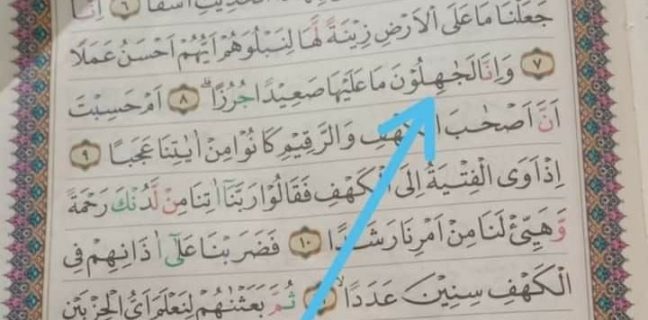 الْحَدِيْثِ اَسَفًا ٦ اِنَّا
جَعَلْنَا مَا عَلَى الْاَرْضِ زِيْنَةً لَّهَا لِنَبْلُوَهُمْ اَيُّهُمْ اَحْسَنُ عَمَلًا
٧ وَاِنَّا لَجٰهِلُوْنَ مَا عَلَيْهَا صَعِيْدًا جُرُزًاۗ ٨ اَمْ حَسِبْتَ
اَنَّ اَصْحٰبَ الْكَهْفِ وَالرَّقِيْمِ كَانُوْا مِنْ اٰيٰتِنَا عَجَبًا ٩
اِذْ اَوَى الْفِتْيَةُ اِلَى الْكَهْفِ فَقَالُوْا رَبَّنَآ اٰتِنَا مِنْ لَّدُنْكَ رَحْمَةً
وَّهَيِّئْ لَنَا مِنْ اَمْرِنَا رَشَدًا ١٠ فَضَرَبْنَا عَلٰٓى اٰذَانِهِمْ فِى
الْكَهْفِ سِنِيْنَ عَدَدًاۙ ثُمَّ بَعَثْنٰهُمْ لِنَعْلَمَ اَيُّ الْحِزْبَيْنِ